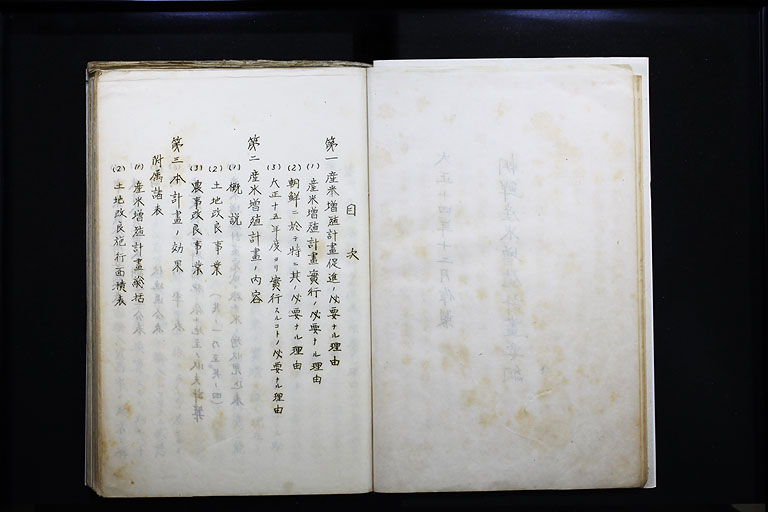 目次
第一 産米増殖計畫促進ノ必要ナル理由
(1) 産米増殖計畫實行ノ必要ナル理由
(2) 朝鮮ニ於テ特ニ其ノ必要ナル理由
(3) 大正十五年度ヨリ實行スルコトノ必要ナル理由
第二 産米増殖計畫ノ内容
(1) 概説
(2) 土地改良事業
(3) 農事改良事業
第三 本計畫ノ効果
附属諸表
(1) 産米増殖計畫総括
(2) 土地改良施行面積表